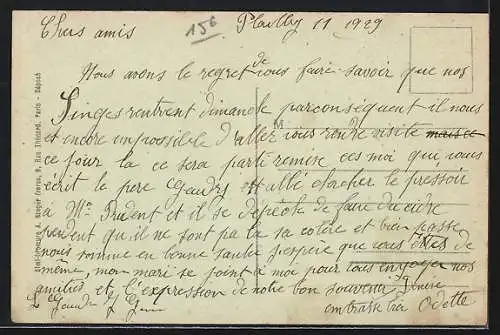 Chers amis 15f Plailly 11 1929
Nous avons le regret de vous faire savoir que nos
Singes rentrent dimanche par conséquent il nous
et encore impossible d'aller vous rendre visite mais ce
ce jour la ce sera parti remise ces moi qui vous
écrit le pere Geudry est allé chercher le pressoir
à Mr Prudent et il se depeche de faire du cidre
pendent qu'il ne sont pas la sa colère et bien passe
nous somme en bonne santé j'espère que vous êtes de
même, mon mari se joint a moi pour vous envoyer nos
amitiés et l'expression de notre bon souvenir Denise
embrasse Odette
Imprimeurs A. Rue Thénard, Paris - Dépôt